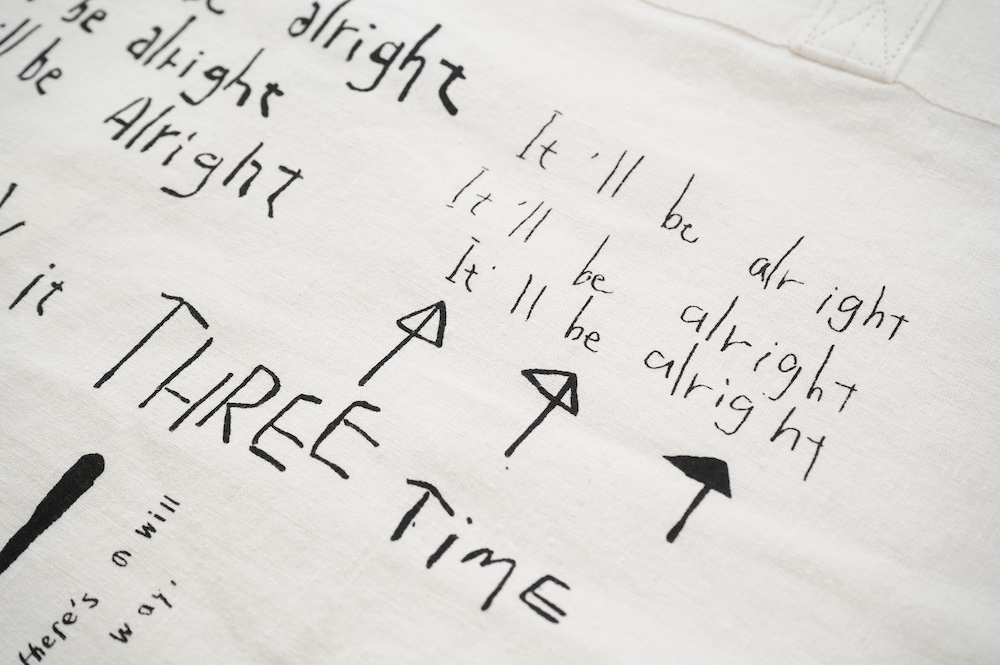 alright
be alright
'll be Alright
It'll be alright
It'll be alright
It'll be alright
it
THREE TiME
there's a will
way.